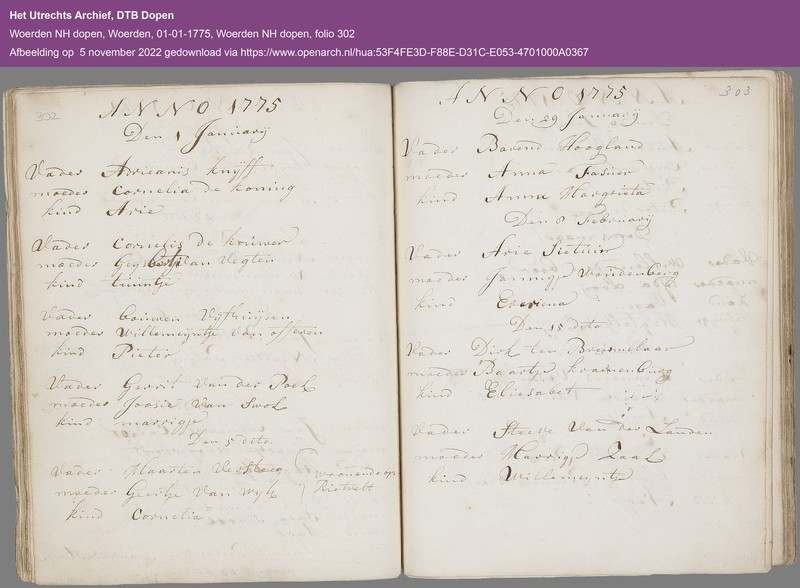 Het Utrechts Archief, DTB Dopen
Woerden NH dopen, Woerden, 01-01-1775, Woerden NH dopen, folio 302
Afbeelding op 5 november 2022 gedownload via https://www.openarch.nl/hua:53F4FE3D-F88E-D31C-E053-4701000A0367
302
ANNO 1775
Den 1 Januarij
Vader Adrieanis knijff
moeder Cornelia de koning
kind Arie
Vader Cornelis de kruwer
moeder van Vegten
kind tuintje
Vader bouwen Vijfhuijsen
moeder Willemeijntje van
kind Pieter
Vader Gerrit van der Poel
moeder Joosie van Swol
kind marrigje
Den 5 dito
Vader Maarten Versteeg
moeder Geertje van wijk
woonende op
Rietvelt
kind Cornelia
303
ANNO 1775
Den 29 Januarij
Vader Barend Hoogland
moeder Anna
kind Anna Margrieta
Den 8 Februarij
Vader Arie
moeder Jannigje
kind Everina
Den 15 dito
Vader Dirk ten
moeder Baartje kranenburg
kind Eliesabet
Vader van der Linden
moeder Marrigje Zaal
kind Willemeijntje